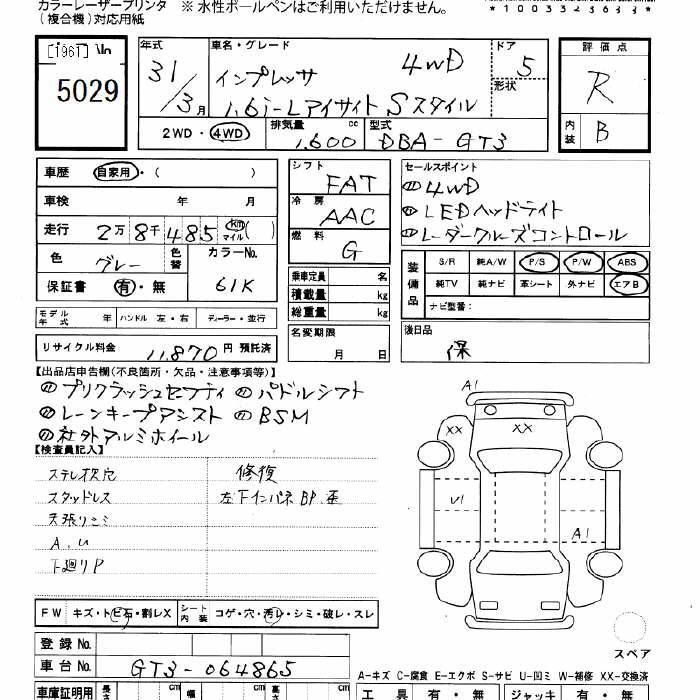 カラーレーザープリンタ ※ 水性ボールペンはご利用いただけません。
(複合機)対応用紙
[1961]
5029
年式 車名・グレード ドア 評価点
31/3月 インプレッサ 4WD 5 R
形状
1.6i-Lアイサイト Sスタイル
2WD・4WD 排気量 1,600 cc 型式 DBA-GT3 内装 B
車歴 自家用・( ) シフト FAT セールスポイント
車検 年 月 冷房 AAC 4WD
走行 2万8千485 km マイル ( ) LEDヘッドライト
燃料 G レーダークルーズコントロール
色 グレー 色替 カラーNo. 61K
保証書 有・無
乗車定員 名
積載量 kg
総重量 kg
装備品 S/R 純A/W P/S P/W ABS
純TV 純ナビ 革シート 外ナビ エアB
ナビ型番:
モデル年式 年 ハンドル 左・右 ディーラー・並行
名変期限 月 日
後日品 保
リサイクル料金 11,870 円 預託済
【出品店申告欄(不良箇所・欠品・注意事項等)】
プリクラッシュセフティ パドルシフト
レーンキープアシスト BSM
社外アルミホイール
【検査員記入】
ステレオ欠穴 修復
スタッドレス 左下インパネBP.歪
天張りシミ
A.U
下廻りP
A1
XX XX
U1
A1
スペア
FW キズ・トビ石・割レX シート内装 コゲ・穴・汚レ・シミ・破レ・スレ
登録No.
車台No. GT3-064865
A-キズ C-腐食 E-エクボ S-サビ U-凹ミ W-補修 XX-交換済
車庫証明用 長さ cm 幅 cm 高さ cm 工具 有・無 ジャッキ 有・無